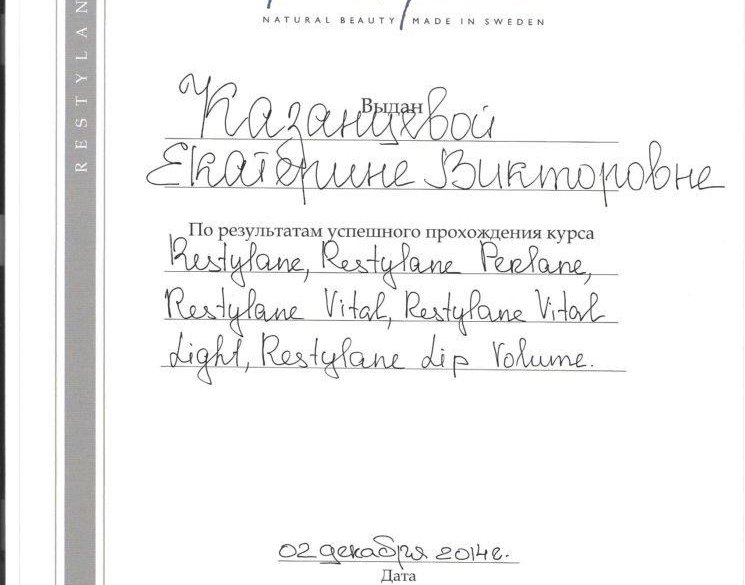 NATURAL BEAUTY MADE IN SWEDEN
RESTYLAN
Выдан
Казанцевой
Екатерине Викторовне
По результатам успешного прохождения курса
Restylane, Restylane Perlane,
Restylane Vital, Restylane Vital
Light, Restylane Lip Volume.
02 декабря 2014г.
Дата